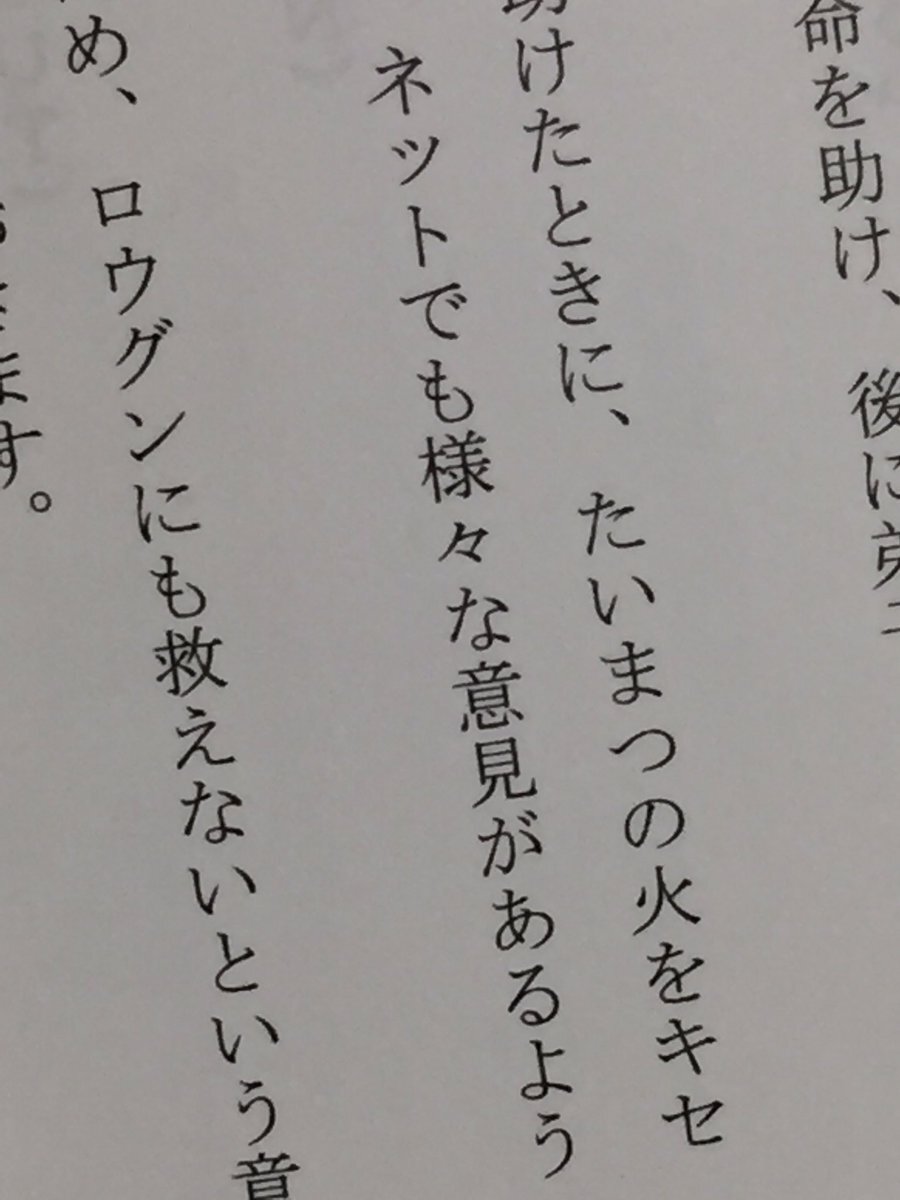 命を助け、後に
助けたときに、たいまつの火をキセ
ネットでも様々な意見があるよう
め、ロウグンにも救えないという意
ます。